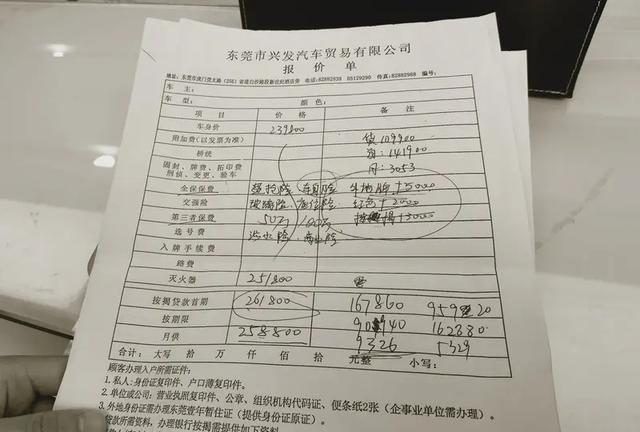 东莞市兴发汽车贸易有限公司
报价单
地址:东莞市虎门 电话:82882938 85129290 传真:82882968 编号:
车主:
车型: 颜色:
项目 价格 备注
车身价 239800
附加费(以发票为准) 贷109900
桥统 首:141900
固封、牌费、拓印费 月:3053
刑侦、变更、验车
全保保费 盗抢险 车损险 本地牌+5000
交强险 玻璃险 责任险 红色+2000
第三者保费 50万 100万 按揭+3000
选号费 涉水险
入牌手续费
路费
灭火器 251800
按揭贷款首期 261800 167860
按期限 162880
月供 258800 9326 5329
合计: 大写 拾 万 仟 佰 拾 元整 小写:
顾客办理入户所需证件:
1.私人:身份证复印件、户口薄复印件。
2.单位或公司:营业执照复印件、公章、组织机构代码证、便条纸2张(企事业单位需办理)。
3.外地身份证需办理东莞壹年暂住证(提供身份证原证)。
贷款所需资料,办理银行按揭需提供如下资料